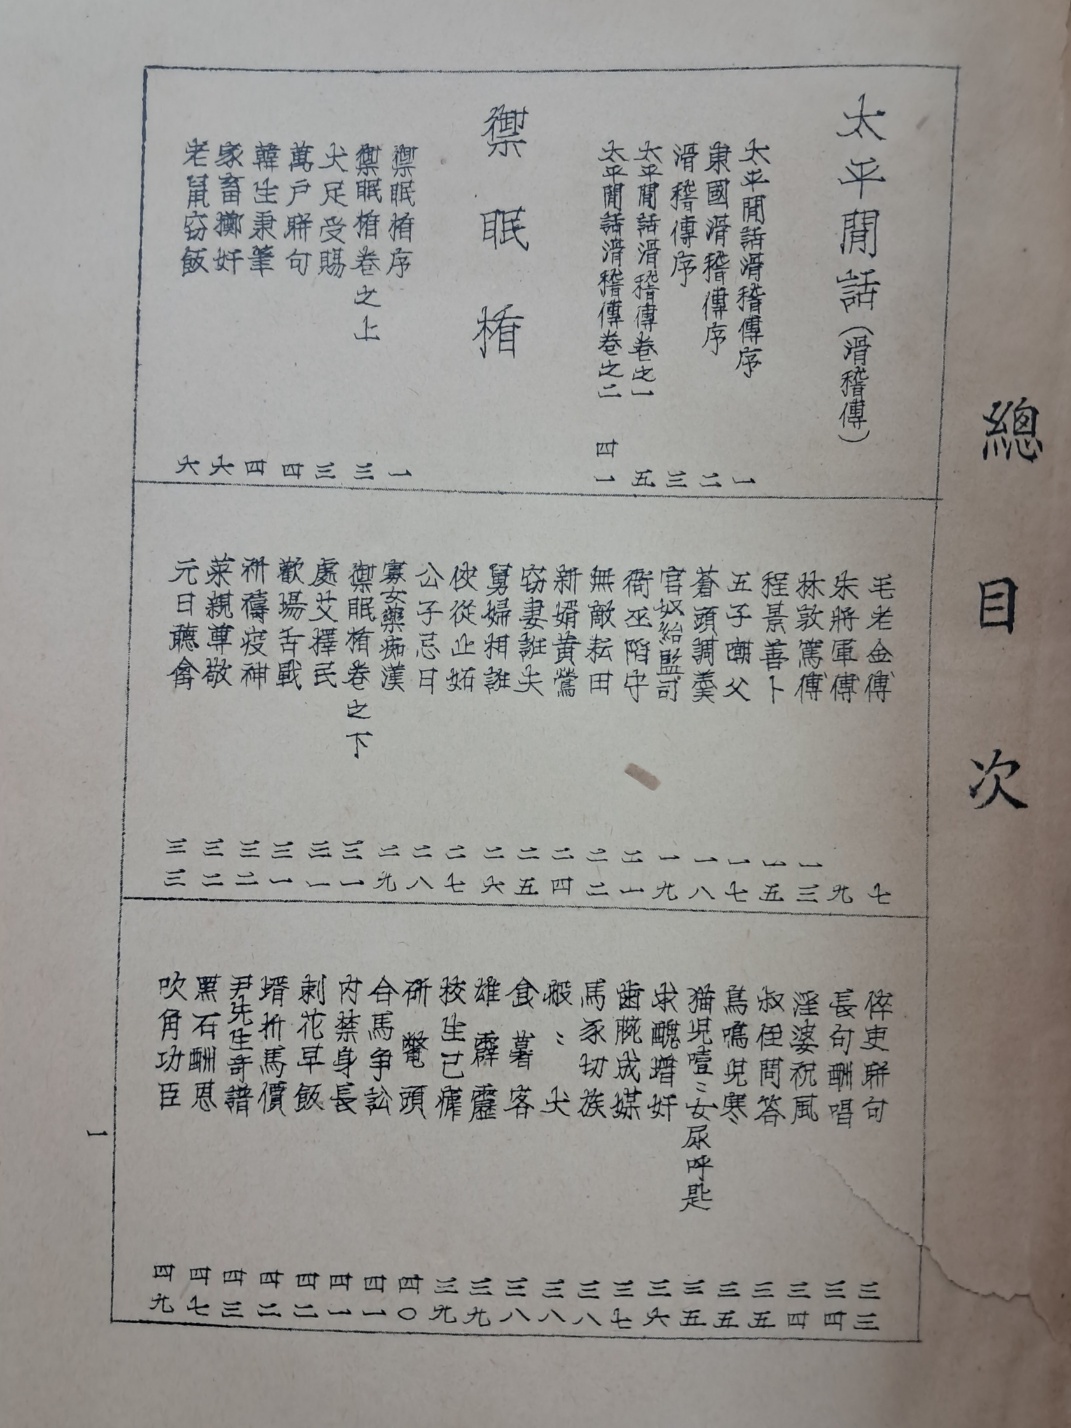 總目次
太平閒話(滑稽傳)
太平閒話滑稽傳序 一
東國滑稽傳序 二
滑稽傳序 三
太平閒話滑稽傳卷之一 五
太平閒話滑稽傳卷之二 四一
禦眠楯
禦眠楯序 一
禦眠楯卷之上 三
犬足受賜 三
萬戶聯句 四
韓生秉筆 四
家畜擲奸 六
老鼠窃飯 六
毛老金傳 七
朱將軍傳 九
林敦篤傳 一三
程景善卜 一五
五子嘲父 一七
蒼頭調羹 一八
官奴紿監司 一九
衙巫陷守 二一
無敵耘田 二二
新婿黄鶯 二四
窃妻誑夫 二五
舅婦相誰 二六
伩從止妬 二七
公子忌日 二八
寡女藥痴漢 二九
禦眠楯卷之下 三一
處艾擇民 三一
歡場舌戰 三一
祈禱疫神 三二
菜親尊敬 三二
元日聽禽 三三
倅吏聯句 三三
長句酬唱 三四
淫婆祝風 三四
叔侄問答 三五
鳥鳴児寒 三五
猫児噎〻女尿呼匙 三五
求醜增奸 三六
齒腕成媒 三七
馬豕切族 三八
般〻犬 三八
食薯客 三八
雄霹靂 三九
校生已瘅 三九
研鼈頭 四〇
合馬争訟 四一
內禁身長 四一
剥花早飯 四二
壻折馬價 四二
尹先生奇譜 四三
黑石酬恩 四七
吹角功臣 四九
一